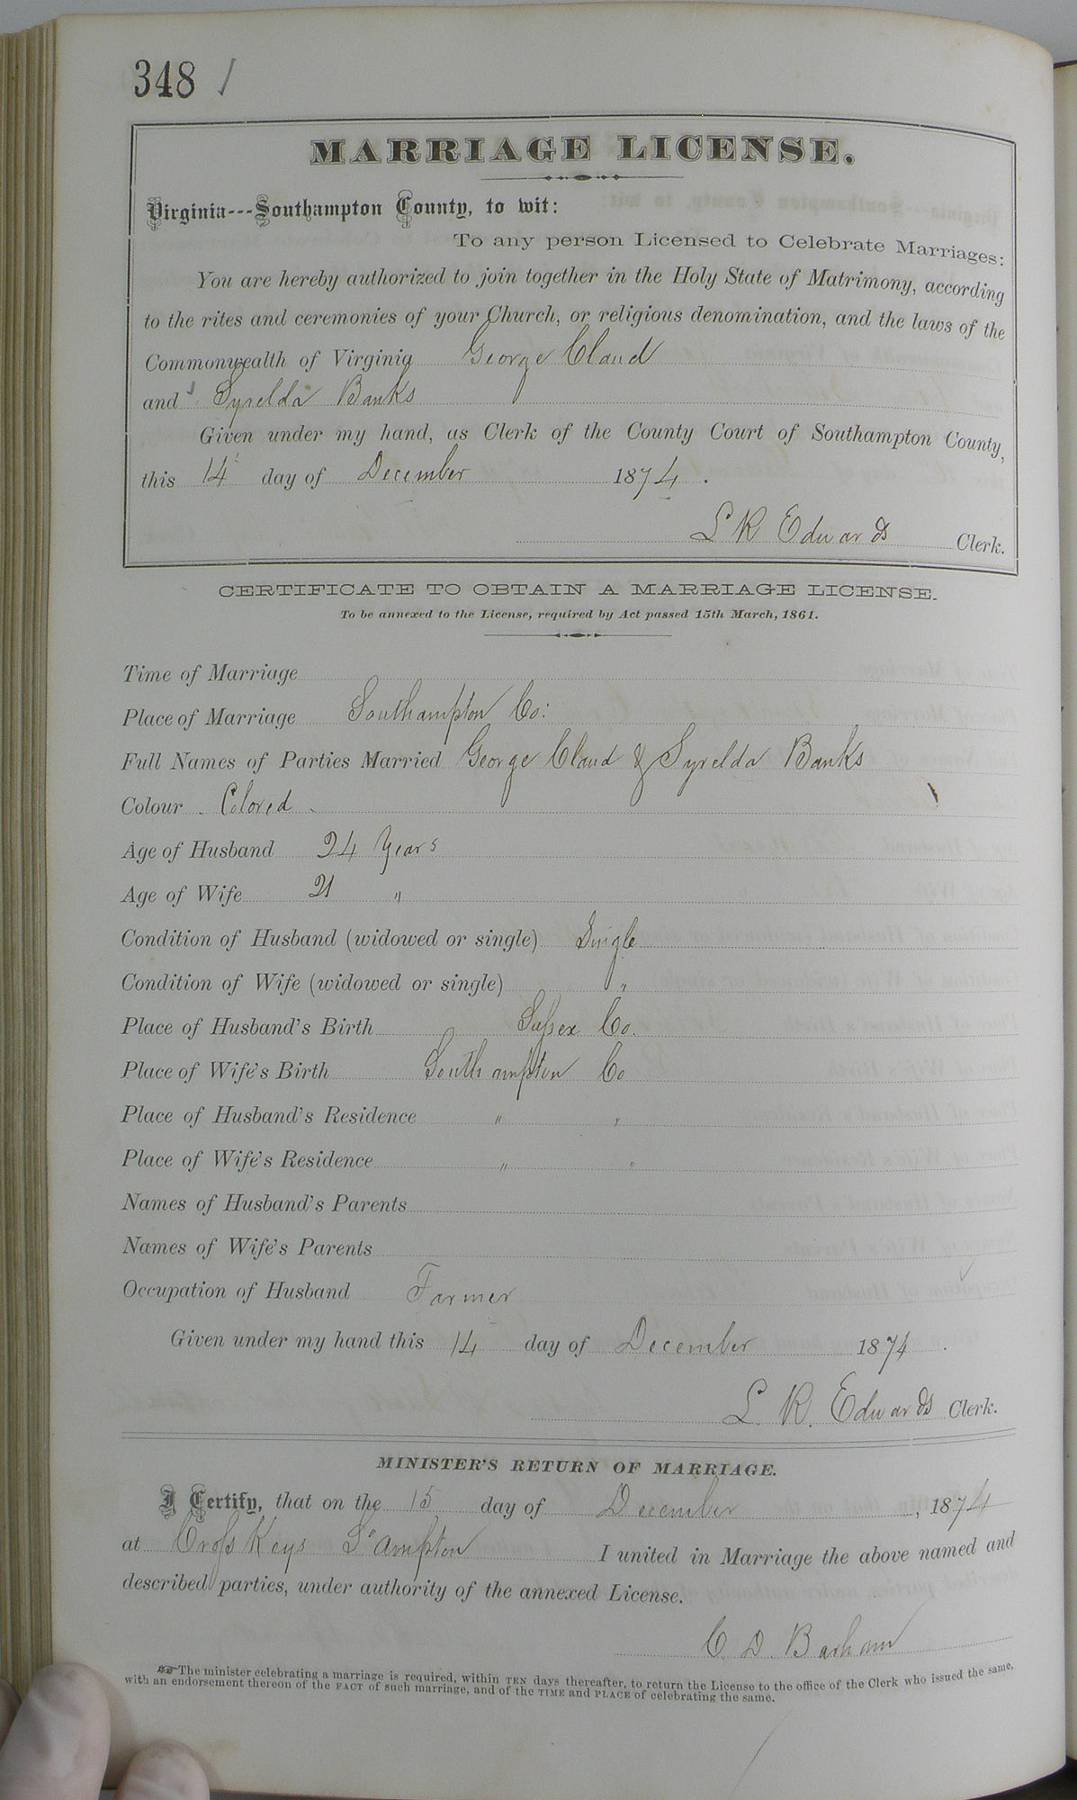 348 /
MARRIAGE LICENSE.
Virginia---Southampton County, to wit:
To any person Licensed to Celebrate Marriages:
You are hereby authorized to join together in the Holy State of Matrimony, according
to the rites and ceremonies of your Church, or religious denomination, and the laws of the
Commonwealth of Virginia George Claud
and Syrelda Banks
Given under my hand, as Clerk of the County Court of Southampton County,
this 14 day of December 1874.
L R Edwards Clerk.
CERTIFICATE TO OBTAIN A MARRIAGE LICENSE.
To be annexed to the License, required by Act passed 15th March, 1861.
Time of Marriage
Place of Marriage Southampton Co:
Full Names of Parties Married George Claud & Syrelda Banks
Colour Colored
Age of Husband 24 Years
Age of Wife 21 "
Condition of Husband (widowed or single) Single
Condition of Wife (widowed or single) "
Place of Husband's Birth Sussex Co.
Place of Wife's Birth Southampton Co
Place of Husband's Residence " "
Place of Wife's Residence " "
Names of Husband's Parents
Names of Wife's Parents
Occupation of Husband Farmer
Given under my hand this 14 day of December 1874
L. R. Edwards Clerk.
MINISTER'S RETURN OF MARRIAGE.
I Certify, that on the 15 day of December, 1874
at Cross Keys S'ampton I united in Marriage the above named and
described parties, under authority of the annexed License.
C. D. Barham
☞The minister celebrating a marriage is required, within TEN days thereafter, to return the License to the office of the Clerk who issued the same,
with an endorsement thereon of the FACT of such marriage, and of the TIME and PLACE of celebrating the same.